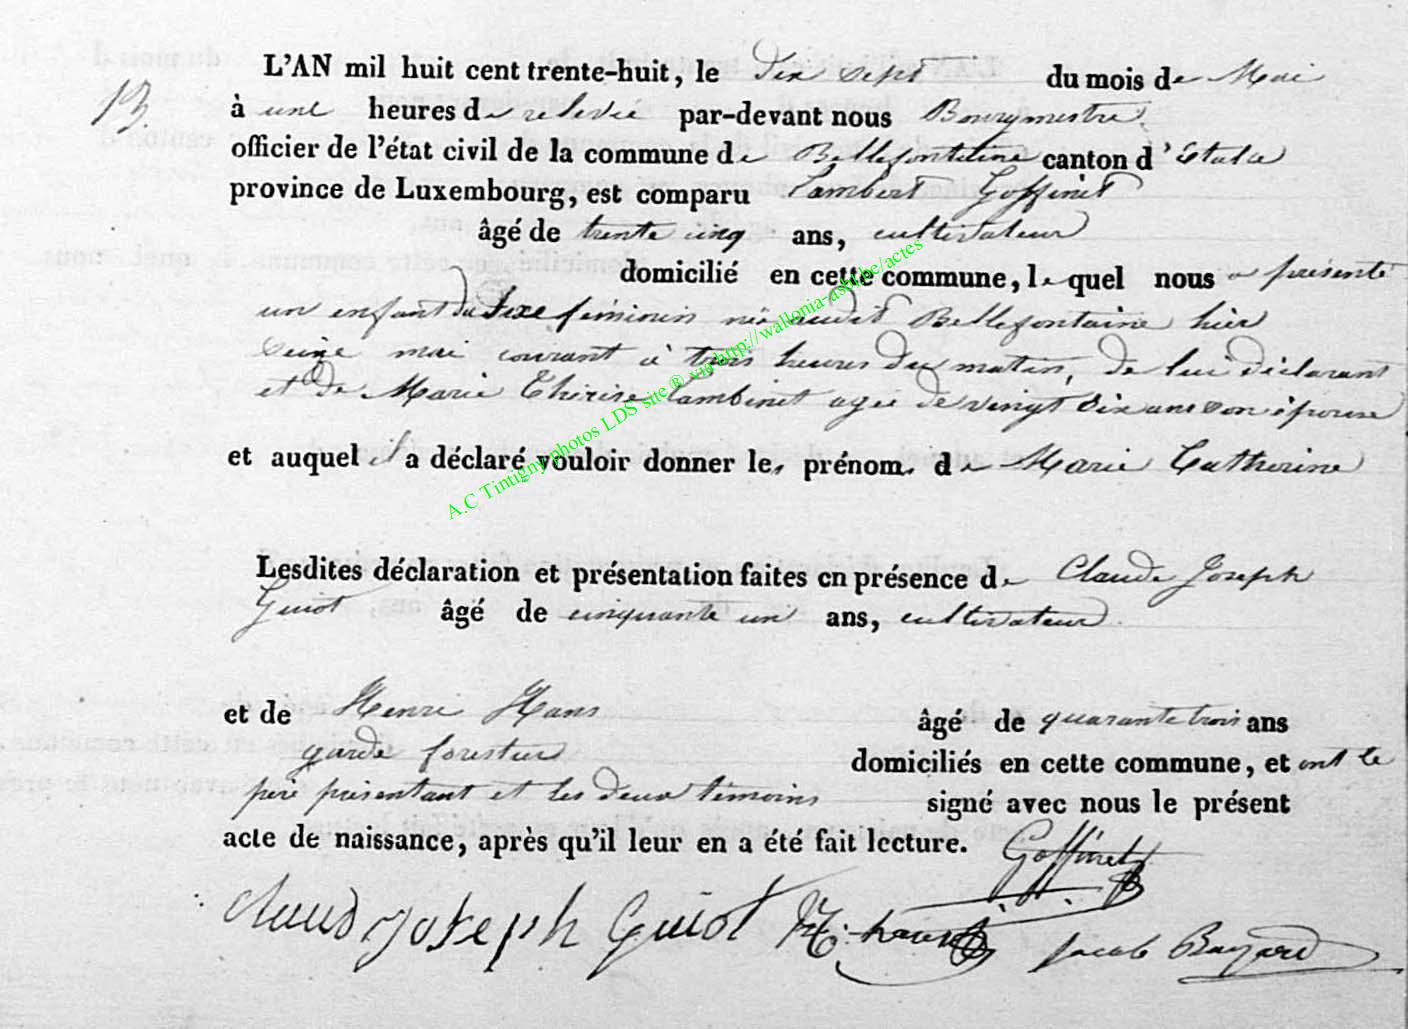 13.
L'AN mil huit cent trente-huit, le dix sept du mois de Mai
à une heures de relevée par-devant nous Bourgmestre
officier de l'état civil de la commune de Bellefontaine canton d'Etala
province de Luxembourg, est comparu Lambert Goffinet
âgé de trente cinq ans, cultivateur
domicilié en cette commune, lequel nous a présenté
un enfant du sexe féminin né audit Bellefontaine hier
seize mai courant à trois heures du matin, de lui déclarant
et de Marie Thérèse Lambinet agée de vingt six ans son épouse
et auquel il a déclaré vouloir donner les prénoms de Marie Catherine
Lesdites déclaration et présentation faites en présence de Claude Joseph
Guiot âgé de cinquante un ans, cultivateur
et de Henri Hans âgé de quarante trois ans
garde forestier domiciliés en cette commune, et ont le
père présentant et les deux témoins signé avec nous le présent
acte de naissance, après qu'il leur en a été fait lecture. Goffinet
Claud Joseph Guiot H: hans Jacob Bayard
A.C Tintigny photos LDS site ® via http://wallonia-asbl.be/actes